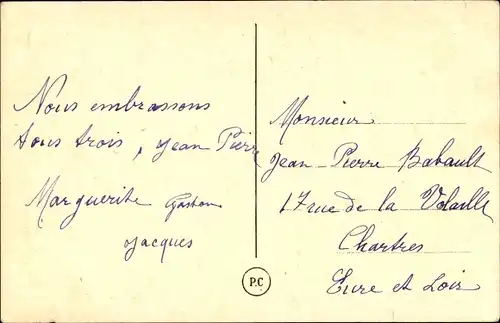 Nous embrassons
tous trois, Jean Pierre
Marguerite Gaston
Jacques
Monsieur
Jean-Pierre Babault
17 rue de la Volaille
Chartres
Eure et Loir
P.C